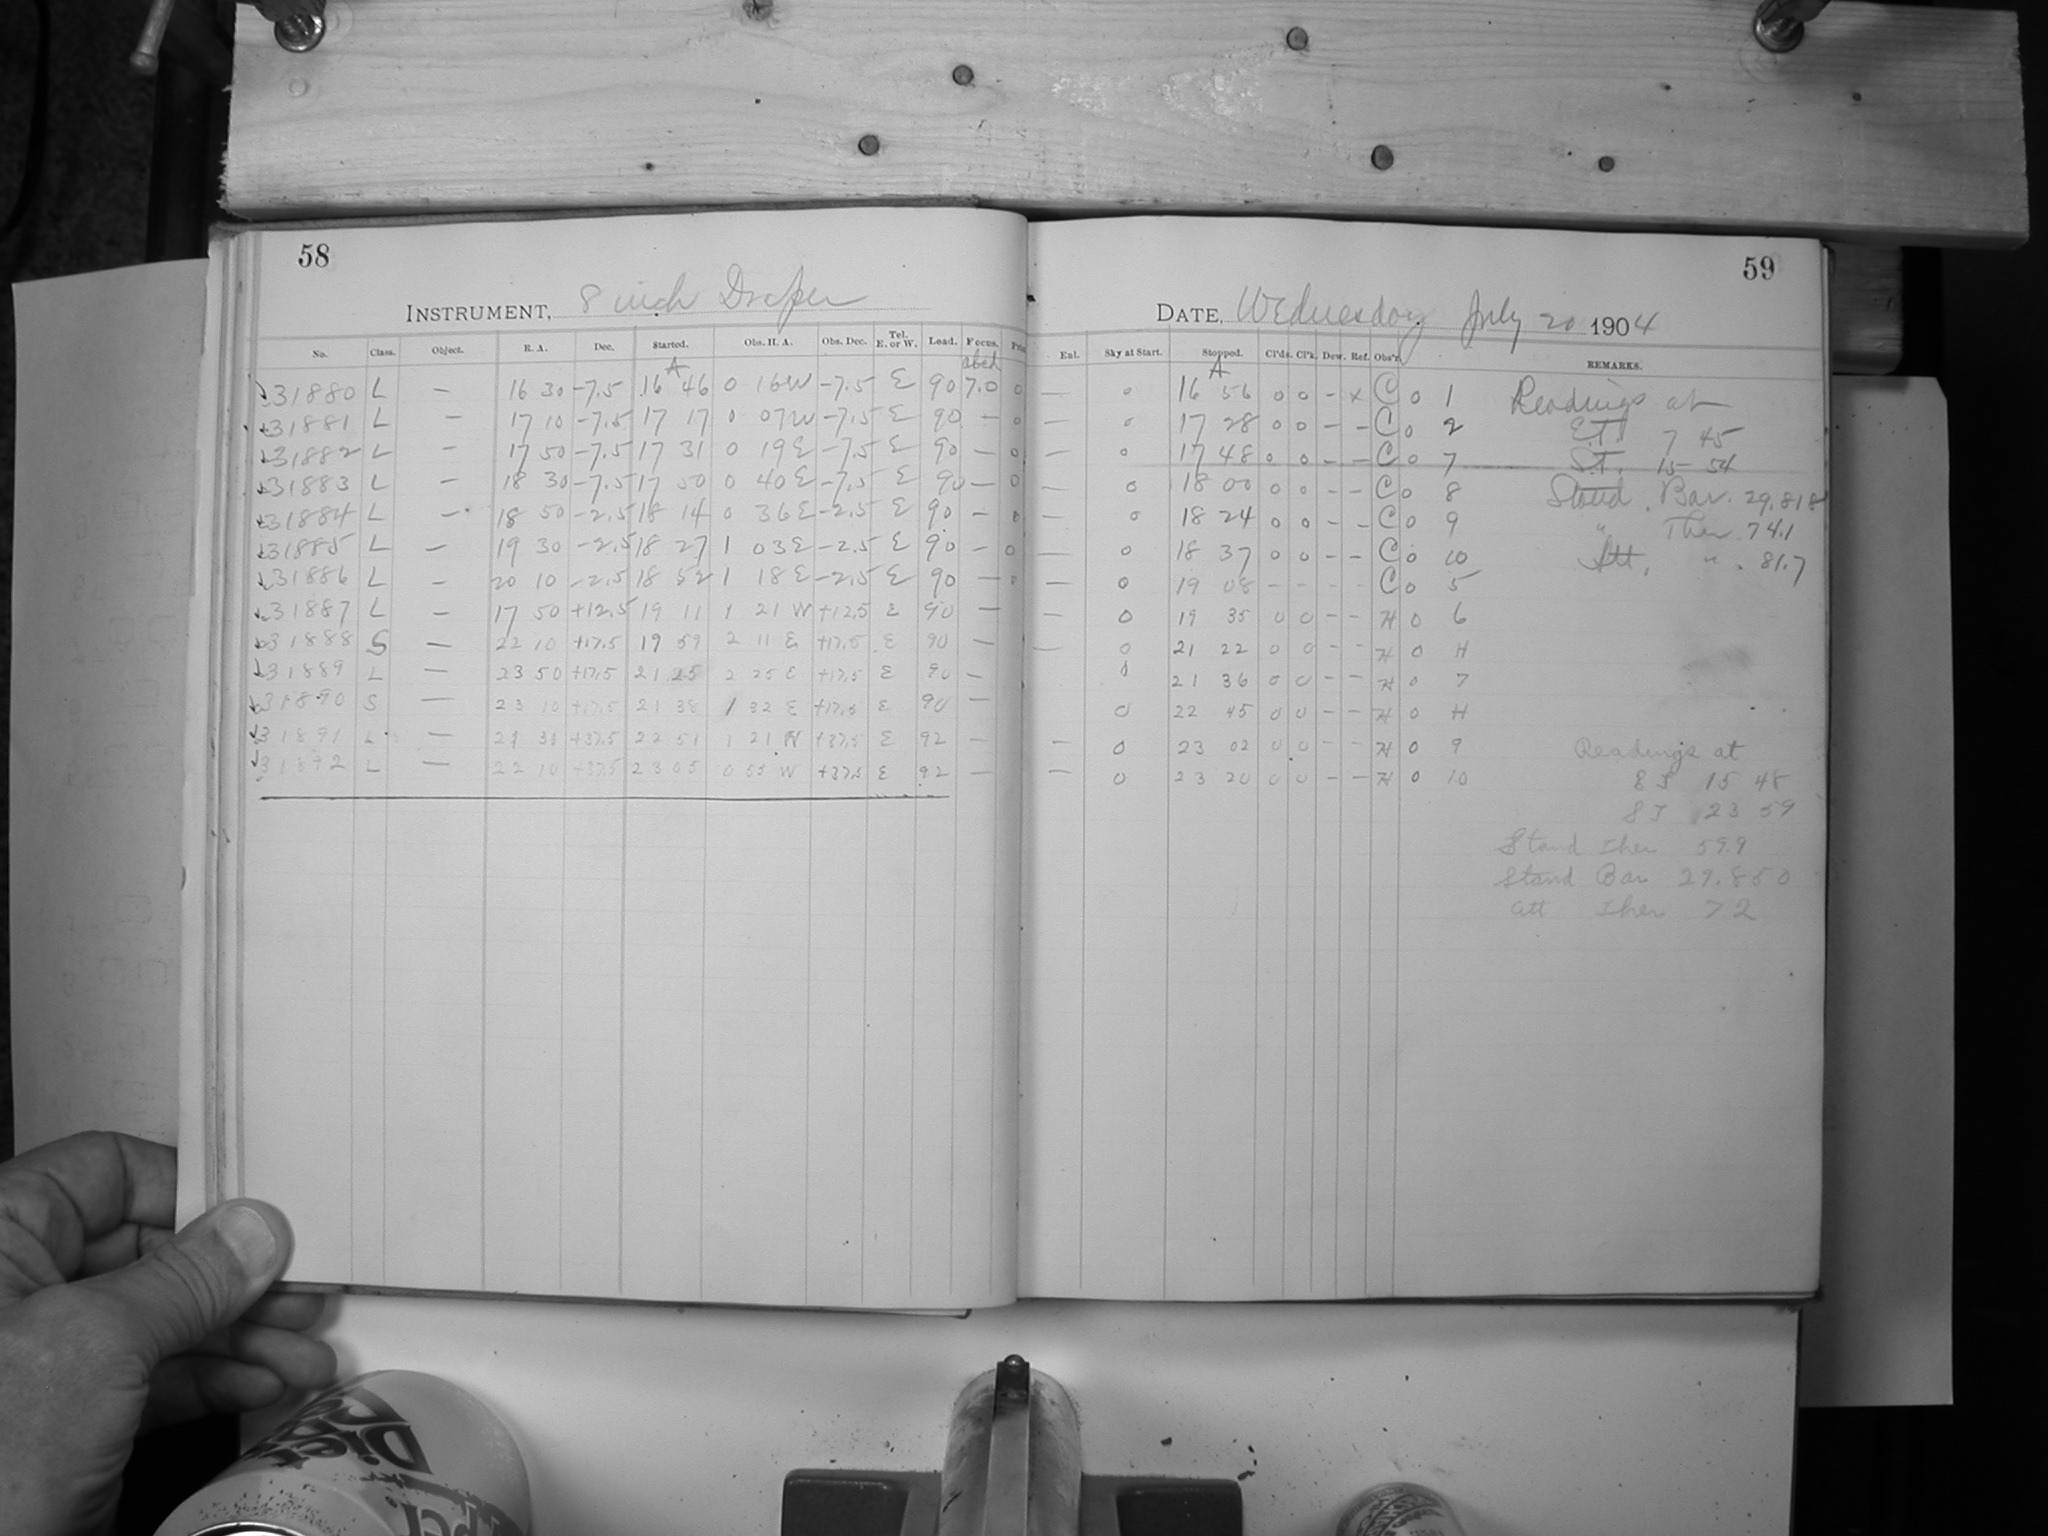 58
INSTRUMENT, 8 inch Draper
No. Class. Object. R. A. Dec. Started. Obs. H. A. Obs. Dec. Tel. E. or W. Load. Focus.
A abed
31880 L — 16 30 -7.5 16 46 0 16 W -7.5 E 90 7.0 0
31881 L — 17 10 -7.5 17 17 0 07 W -7.5 E 90 — 0
31882 L — 17 50 -7.5 17 31 0 19 E -7.5 E 90 — 0
31883 L — 18 30 -7.5 17 50 0 40 E -7.5 E 90 — 0
31884 L — 18 50 -2.5 18 14 0 36 E -2.5 E 90 — 0
31885 L — 19 30 -2.5 18 27 1 03 E -2.5 E 90 — 0
31886 L — 20 10 -2.5 18 52 1 18 E -2.5 E 90 — 0
31887 L — 17 50 +12.5 19 11 1 21 W +12.5 E 90 —
31888 S — 22 10 +17.5 19 59 2 11 E +17.5 E 90 —
31889 L — 23 50 +17.5 21 25 2 25 E +17.5 E 90 —
31890 S — 23 10 +17.5 21 38 1 32 E +17.5 E 90 —
31891 L — 21 30 +37.5 22 51 1 21 W +37.5 E 92 —
31892 L — 22 10 +37.5 23 05 0 55 W +37.5 E 92 —
59
DATE, Wednesday July 20 1904
Ext. Sky at Start. Stopped. Cl'ds. Cl'k. Dew. Ref. Obs'r. REMARKS.
A
— 0 16 56 0 0 - x C 0 1 Readings at
— 0 17 28 0 0 - - C 0 2 E.T. 7 45
— 0 17 48 0 0 - - C 0 7 S.T. 15 54
— 0 18 00 0 0 - - C 0 8 Stand. Bar. 29.818
— 0 18 24 0 0 - - C 0 9 " Ther. 74.1
— 0 18 37 0 0 - - C 0 10 Att. " . 81.7
— 0 19 08 - - - - C 0 5
— 0 19 35 0 0 - - H 0 6
— 0 21 22 0 0 - - H 0 H
0 21 36 0 0 - - H 0 7
0 22 45 0 0 - - H 0 H
— 0 23 02 0 0 - - H 0 9 Readings at
— 0 23 20 0 0 - - H 0 10 15 48
23 59
Stand Ther 59.9
Stand Bar 29.850
Att Ther 72
Diet